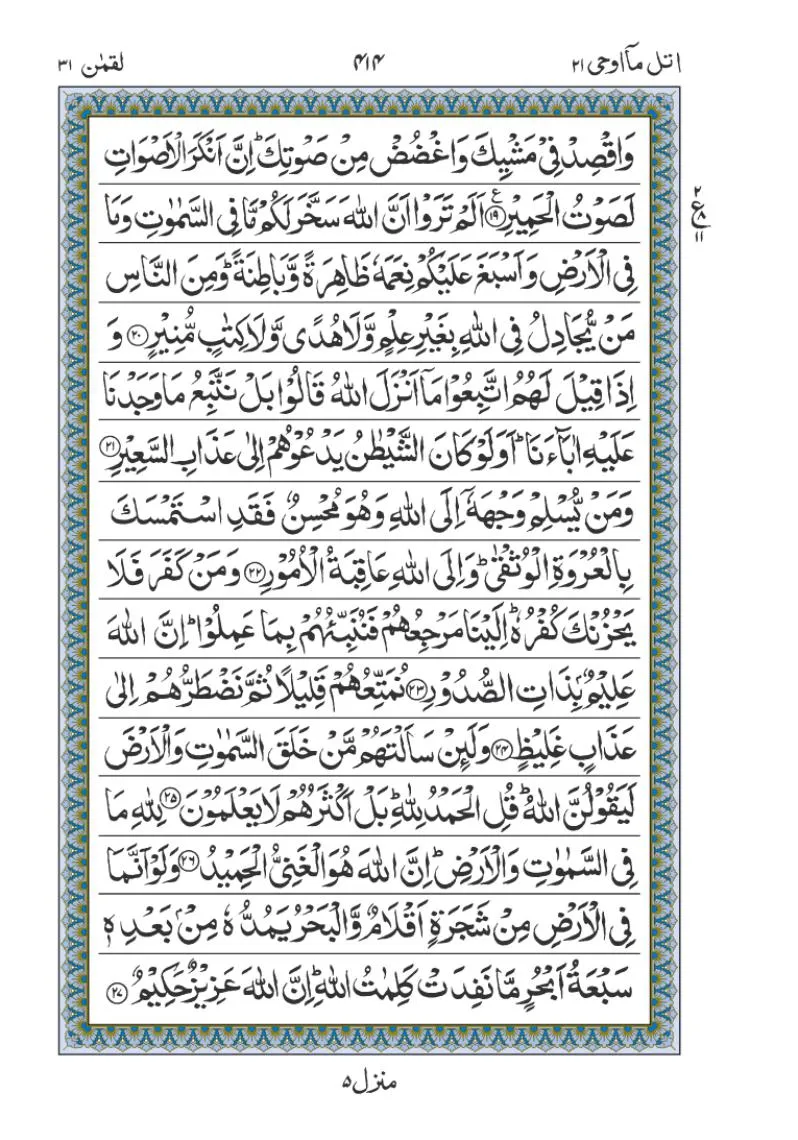 اتل مآ اوحی ۲۱
۴۱۴
لقمٰن ۳۱
وَاقْصِدْ فِیْ مَشْیِكَ وَاغْضُضْ مِنْ صَوْتِكَ ؕ اِنَّ اَنْكَرَ الْاَصْوَاتِ
لَصَوْتُ الْحَمِیْرِ ۟ع ۱۹ اَلَمْ تَرَوْا اَنَّ اللّٰهَ سَخَّرَ لَكُمْ مَّا فِی السَّمٰوٰتِ وَمَا
۲
ع ۸
۱۱
فِی الْاَرْضِ وَاَسْبَغَ عَلَیْكُمْ نِعَمَهٗ ظَاهِرَةً وَّبَاطِنَةً ؕ وَمِنَ النَّاسِ
مَنْ یُّجَادِلُ فِی اللّٰهِ بِغَیْرِ عِلْمٍ وَّلَا هُدًی وَّلَا كِتٰبٍ مُّنِیْرٍ ۲۰ وَ
اِذَا قِیْلَ لَهُمُ اتَّبِعُوْا مَاۤ اَنْزَلَ اللّٰهُ قَالُوْا بَلْ نَتَّبِعُ مَا وَجَدْنَا
عَلَیْهِ اٰبَآءَنَا ؕ اَوَلَوْ كَانَ الشَّیْطٰنُ یَدْعُوْهُمْ اِلٰی عَذَابِ السَّعِیْرِ ۲۱
وَمَنْ یُّسْلِمْ وَجْهَهٗۤ اِلَی اللّٰهِ وَهُوَ مُحْسِنٌ فَقَدِ اسْتَمْسَكَ
بِالْعُرْوَةِ الْوُثْقٰی ؕ وَاِلَی اللّٰهِ عَاقِبَةُ الْاُمُوْرِ ۲۲ وَمَنْ كَفَرَ فَلَا
یَحْزُنْكَ كُفْرُهٗ ؕ اِلَیْنَا مَرْجِعُهُمْ فَنُنَبِّئُهُمْ بِمَا عَمِلُوْا ؕ اِنَّ اللّٰهَ
عَلِیْمٌۢ بِذَاتِ الصُّدُوْرِ ۲۳ نُمَتِّعُهُمْ قَلِیْلًا ثُمَّ نَضْطَرُّهُمْ اِلٰی
عَذَابٍ غَلِیْظٍ ۲۴ وَلَئِنْ سَاَلْتَهُمْ مَّنْ خَلَقَ السَّمٰوٰتِ وَالْاَرْضَ
لَیَقُوْلُنَّ اللّٰهُ ؕ قُلِ الْحَمْدُ لِلّٰهِ ؕ بَلْ اَكْثَرُهُمْ لَا یَعْلَمُوْنَ ۲۵ لِلّٰهِ مَا
فِی السَّمٰوٰتِ وَالْاَرْضِ ؕ اِنَّ اللّٰهَ هُوَ الْغَنِیُّ الْحَمِیْدُ ۲۶ وَلَوْ اَنَّمَا
فِی الْاَرْضِ مِنْ شَجَرَةٍ اَقْلَامٌ وَّالْبَحْرُ یَمُدُّهٗ مِنْۢ بَعْدِهٖ
سَبْعَةُ اَبْحُرٍ مَّا نَفِدَتْ كَلِمٰتُ اللّٰهِ ؕ اِنَّ اللّٰهَ عَزِیْزٌ حَكِیْمٌ ۲۷
منزل ۵